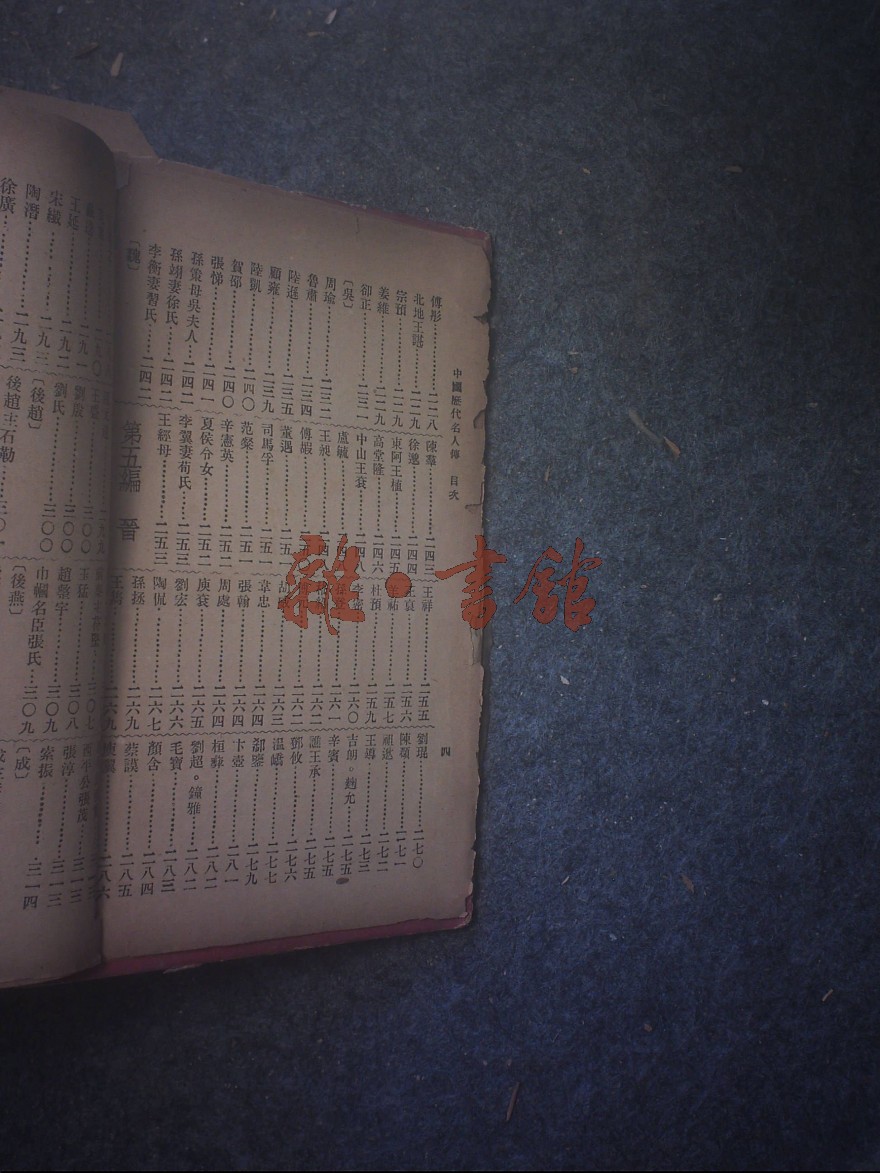 中國歷代名人傳 目次
四
傅彤……二二八
北地王諶……二二九
宗預……二二九
姜維……二二九
卻正……二三一
〔吳〕
周瑜……二三二
魯肅……二三四
陸遜……二三五
顧雍……二三九
陸凱……二四〇
賀邵……二四〇
張悌……二四一
孫策母吳夫人……二四二
孫翊妻徐氏……二四二
李衡妻習氏……二四二
〔魏〕
陳羣……二四三
徐邈……二四四
東阿王植……二四五
高堂隆……二四六
中山王袞……二四八
盧毓
王昶
傅嘏
董遇
司馬孚……二五一
范粲……二五一
辛憲英……二五一
夏侯令女……二五二
李翼妻荀氏……二五三
王經母……二五三
第五編 晉
王祥……二五五
王裒……二五六
羊祜……二五七
杜預……二五九
李密……二六〇
韋忠……二六四
張翰……二六四
周處……二六四
庾袞……二六五
劉宏……二六六
陶侃……二六七
孫拯……二六九
劉琨……二七〇
陳頵……二七一
祖逖……二七二
王導……二七三
吉朗。麴允……二七五
辛賓……二七五
譙王承……二七五
鄧攸……二七六
温嶠……二七七
郗鑒……二七九
卞壺……二八一
桓彝……二八二
劉超。鍾雅……二八二
毛寶……二八三
顏含……二八四
蔡謨……二八五
王延……二九二
宋纖……二九三
陶潛……二九三
徐廣
劉殷……三〇〇
劉氏……三〇〇
〔後趙〕
後趙主石勒……三〇一
王猛……三〇八
趙整宇……三〇九
巾幗名臣張氏……三〇九
〔後燕〕
張淳……三一三
索振……三一四
〔成〕
雜·書館